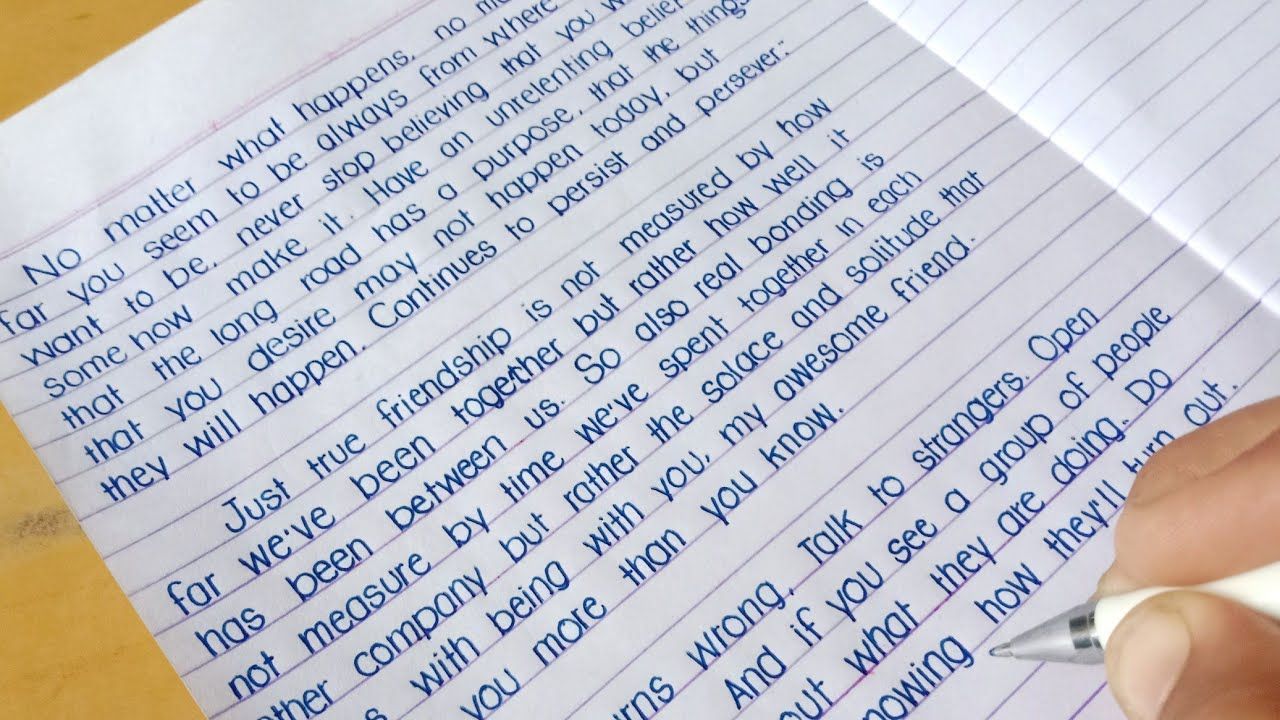 No matter what happens, no
far you seem to be always from where
want to be, never stop believing that you
some how make it. Have an unrelenting belief
that the long road has a purpose, that the things
that you desire may not happen today, but
they will happen. Continues to persist and persever:
Just true friendship is not measured by how
far we've been together but rather how well it
has been between us. So also real bonding is
not measure by time we've spent together in each
other company but rather the solace and solitude that
with being with you, my awesome friend.
you more than you know.
wrong, Talk to strangers. Open
And if you see a group of people
what they are doing. Do
how they'll turn out.